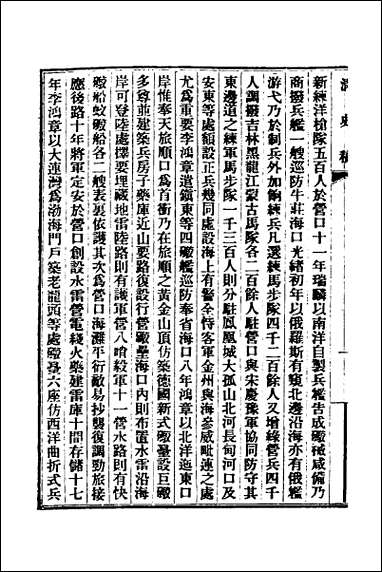 清史稿
新練洋槍隊五百人於營口十一年瑞麟以南洋自製兵艦告成礮械咸備乃
商撥兵艦一艘巡防牛莊海口光緒初年以俄羅斯有窺北邊沿海亦有俄艦
游弋乃於制兵外加餉練兵凡選練馬步隊四千二百餘人又增練營兵四千
人調撥吉林黑龍江蒙古馬隊各二百餘人駐營口與宋慶豫軍協同防守其
東邊道之練軍馬步隊一千三百人則分駐鳳凰城大孤山北河長甸河口及
安東等處額設正兵幾同虛設海上有警全恃客軍金州與海參威毗連之處
尤爲重要李鴻章遣鎮東等四礮艦巡防奉省海口八年鴻章以北洋迤東口
岸惟奉天旅順口爲首衝乃在旅順之黃金山頂仿築德國新式礮臺設巨礮
多尊並建築兵房子藥庫近山要路復設行營礮壘海口內則布置水雷沿海
岸可登陸處擇要埋藏地雷陸路則有護軍營八哨毅軍十一營水路則有快
礮船蚊礮船各二艘表裏依護其次爲營口海灘平衍敵易抄襲復調勁旅接
應後路十年將軍定安於營口創設水雷營電綫火藥建雷庫十間存儲十七
年李鴻章以大連灣爲渤海門戶築老龍頭等處礮臺六座仿西洋曲折式兵